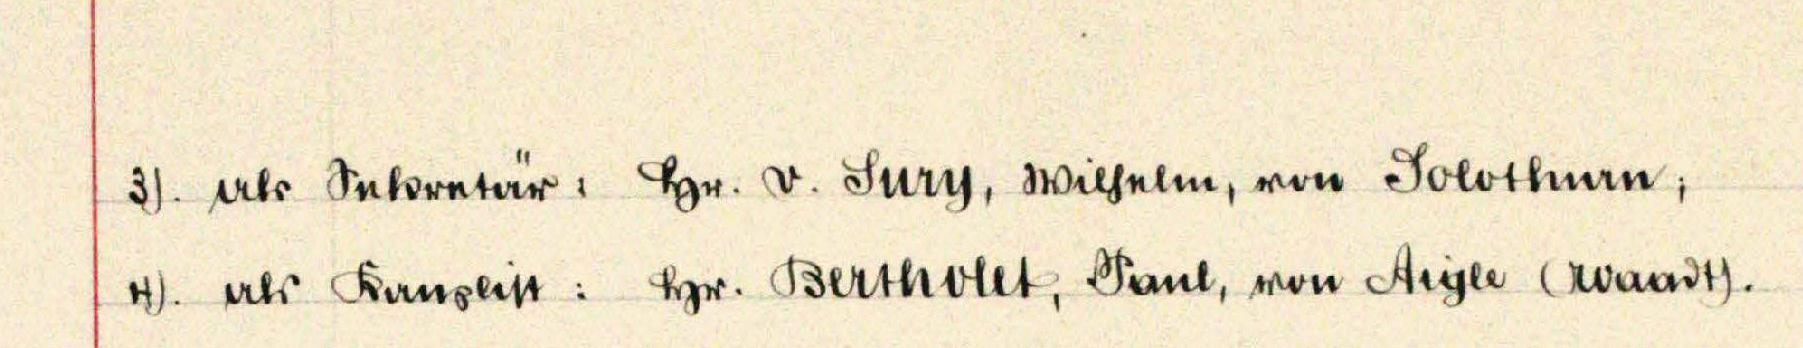 3). als Sekretär: Hr. v. Sury, Wilhelm, von Solothurn;
4). als Kanzlist: Hr. Bertholet, Paul, von Aigle (Waadt).